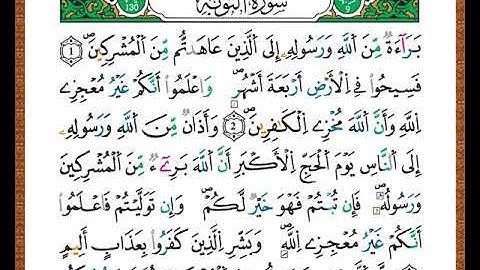 سُورَةُ التَّوْبَةِ
بَرَآءَةٌ مِّنَ اللَّهِ وَرَسُولِهِۦٓ إِلَى الَّذِينَ عَاهَدتُّم مِّنَ الْمُشْرِكِينَ ۝١
فَسِيحُوا۟ فِى الْأَرْضِ أَرْبَعَةَ أَشْهُرٍ وَاعْلَمُوٓا۟ أَنَّكُمْ غَيْرُ مُعْجِزِى
اللَّهِ وَأَنَّ اللَّهَ مُخْزِى الْكَٰفِرِينَ ۝٢ وَأَذَٰنٌ مِّنَ اللَّهِ وَرَسُولِهِۦٓ
إِلَى النَّاسِ يَوْمَ الْحَجِّ الْأَكْبَرِ أَنَّ اللَّهَ بَرِىٓءٌ مِّنَ الْمُشْرِكِينَ
وَرَسُولُهُۥ فَإِن تُبْتُمْ فَهُوَ خَيْرٌ لَّكُمْ وَإِن تَوَلَّيْتُمْ فَاعْلَمُوٓا۟
أَنَّكُمْ غَيْرُ مُعْجِزِى اللَّهِ وَبَشِّرِ الَّذِينَ كَفَرُوا۟ بِعَذَابٍ أَلِيمٍ